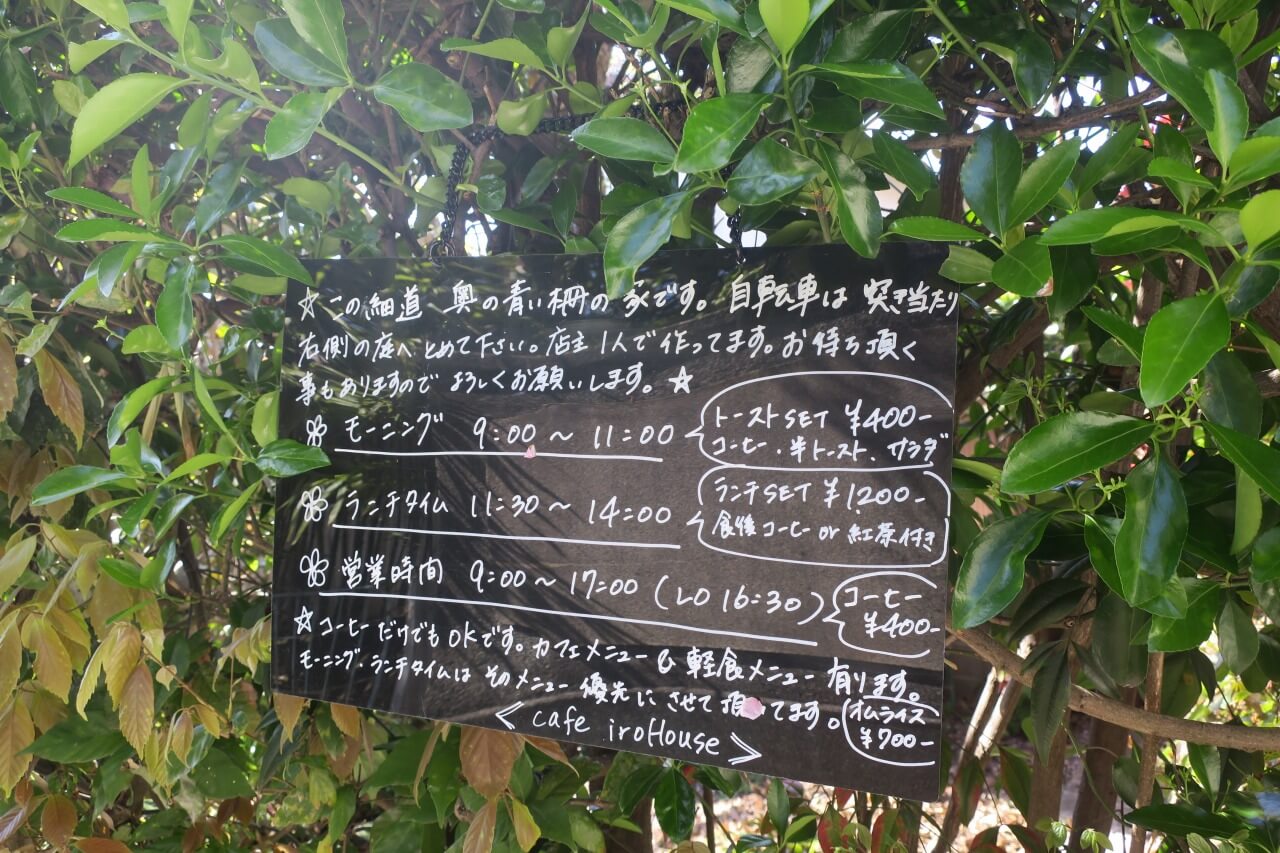 ☆この細道 奥の青い柵の家です。自転車は 突き当たり
右側の庭へ とめて下さい。店主1人で作ってます。お待ち頂く
事もありますので よろしくお願いします。☆
モーニング 9:00～11:00
トーストSET ¥400-
コーヒー・半トースト、サラダ
ランチタイム 11:30～14:00
ランチSET ¥1200-
食後コーヒー or 紅茶付き
営業時間 9:00～17:00(LO 16:30)
コーヒー
¥400-
☆コーヒーだけでもOKです。カフェメニュー & 軽食メニュー 有ります。
モーニング・ランチタイムは そのメニュー優先にさせて頂いてます。
オムライス
¥900-
<cafe iroHouse>